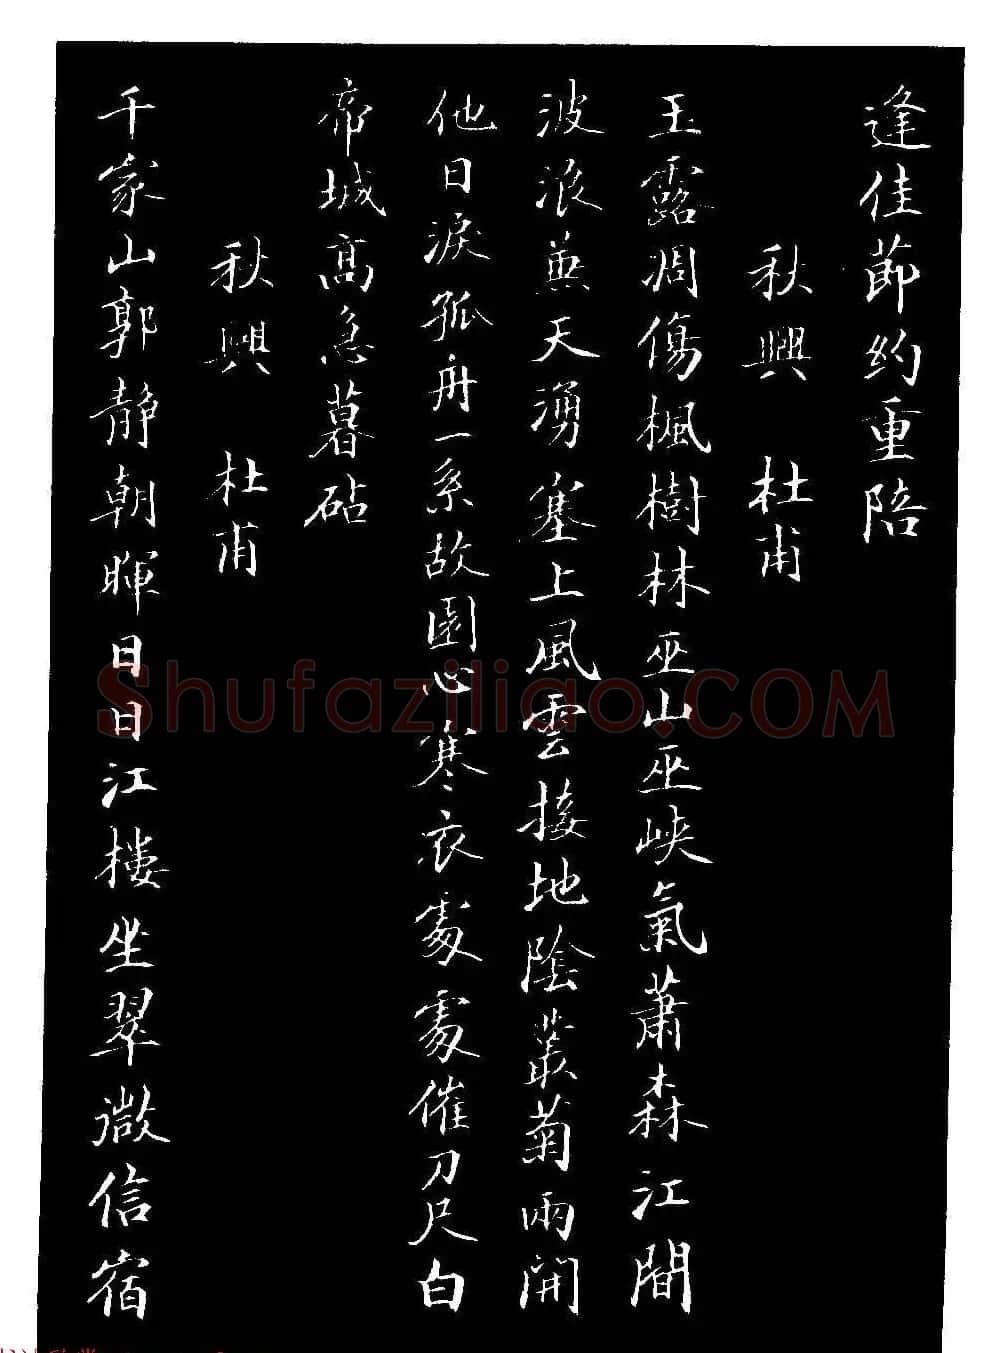 逢佳節約重陪
秋興 杜甫
玉露凋傷楓樹林巫山巫峽氣蕭森江間
波浪兼天湧塞上風雲接地陰叢菊兩開
他日淚孤舟一系故園心寒衣處處催刀尺白
帝城高急暮砧
秋興 杜甫
千家山郭靜朝暉日日江樓坐翠微信宿
Shufaziliao.COM